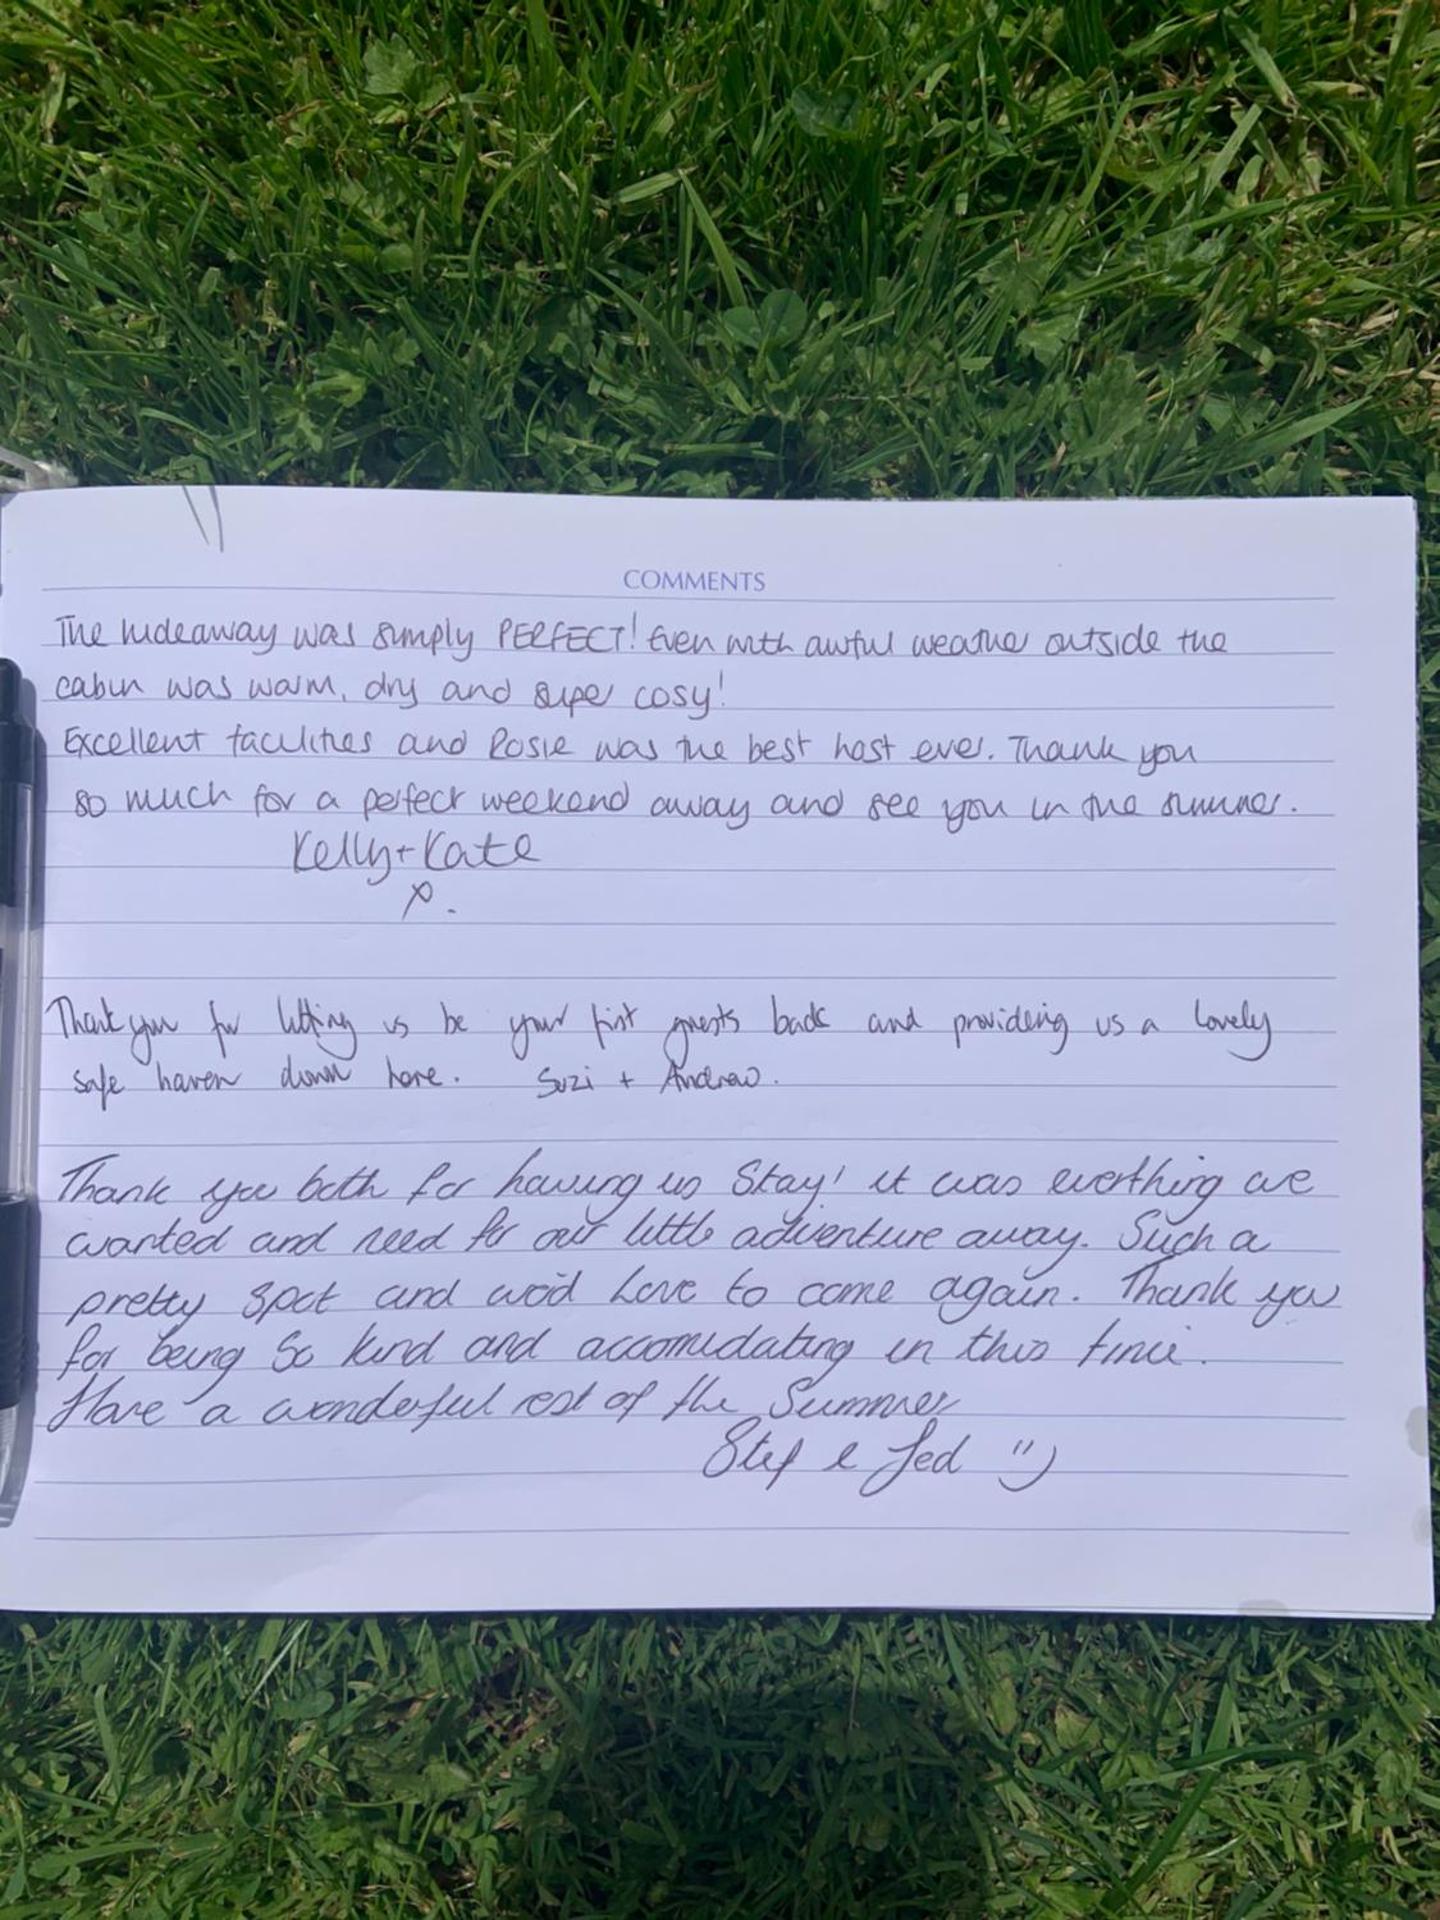 COMMENTS
The hideaway was simply PERFECT! Even with awful weather outside the
cabin was warm, dry and super cosy!
Excellent facilities and Rosie was the best host ever. Thank you
so much for a perfect weekend away and see you in the summer.
Kelly + Kate
x.
Thank you for letting us be your first guests back and providing us a lovely
safe haven down here. Suzi + Andrew.
Thank you both for having us Stay! it was everthing we
wanted and need for our little adventure away. Such a
pretty spot and wo'd Love to come again. Thank you
for being So kind and accomidating in this time.
Have a wonderful rest of the Summer
Stef & Jed :)